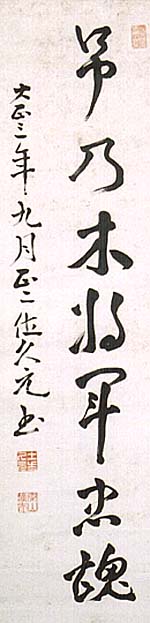 吊乃木将軍忠魂
大正三年九月正二位久元書